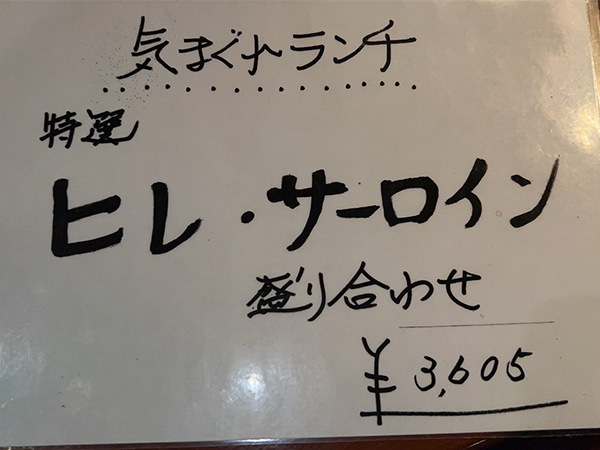 気まぐれランチ
特選
ヒレ・サーロイン
盛り合わせ
¥3,605